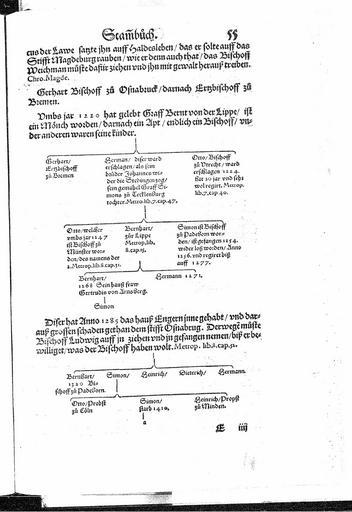 Stam̃bůch. 55
cus der Lawe satzte jhn auff Haldesleben / das er solte auff das
Stifft Magdeburg rauben / wie er denn auch that / das Bischoff
Weichman můste dafür ziehen und jhn mit gewalt herauß treiben.
Chro. Magde.
Gerhart Bischoff zů Osnabruck / darnach Ertzbischoff zů
Bremen.
Vmbs jar 1220 hat gelebt Graff Bernt von der Lippe / ist
ein Mönch worden / darnach ein Apt / endlich ein Bischoff / vn-
der anderen waren seine kinder.
Gerhart /
Ertzbischoff
zů Bremen
Herman / diser ward
erschlagen / als sein
brůder Johannes wi-
der die Stedinger zog /
sein gemahel Graff Si-
mons zů Tecklenburg
tochter. Metrop. lib. 7. cap. 47.
Otto / Bischoff
zů Vtrecht / ward
erschlagen 1224.
hat 10 jar vnd sehr
wol regirt. Metrop.
lib. 7. cap. 40.
Otto / welcher
vmbs jar 1247
ist Bischoff zů
Münster wor-
den / des namens der
2. Metrop. lib. 8. cap. 31.
Bernhart /
zůr Lippe
Metrop. lib.
8. cap. 15.
Simon ist Bischoff
zů Padelborn wor-
den / ist gefangen 1254.
wider loß worden / Anno
1256. vnd regiret biß
auff 1277.
Bernhart /
1268 Sein hauß fraw
Gertrudis von Arnsberg.
Hermann 1271.
Simon
Diser hat Anno 1285 das hauß Engern jnne gehabt / vnd dar-
auß grossen schaden gethan dem stifft Osnabrug. Derwegẽ můste
Bischoff Ludwig auff jn ziehen vnd jn gefangen nemen / biß er be-
williget / was der Bischoff haben wolt. Metrop. lib. 8. cap. 32.
Bernhart /
1320 Bi-
schoff zů Padelborn.
Simon /
Heinrich /
Dieterich /
Hermann.
Otto / Probst
zů Cöln
Simon /
starb 1410,
Heinrich / Propst
zů Minden.
a
E iiij